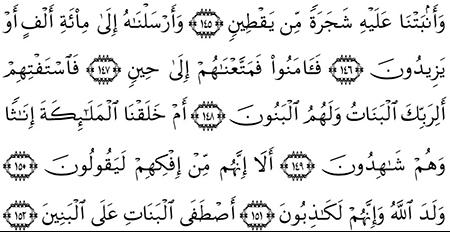 وَأَنۢبَتْنَا عَلَيْهِ شَجَرَةً مِّن يَقْطِينٍ ﴿١٤٥﴾ وَأَرْسَلْنَٰهُ إِلَىٰ مِا۟ئَةِ أَلْفٍ أَوْ
يَزِيدُونَ ﴿١٤٦﴾ فَـَٔامَنُوا۟ فَمَتَّعْنَٰهُمْ إِلَىٰ حِينٍ ﴿١٤٧﴾ فَٱسْتَفْتِهِمْ
أَلِرَبِّكَ ٱلْبَنَاتُ وَلَهُمُ ٱلْبَنُونَ ﴿١٤٨﴾ أَمْ خَلَقْنَا ٱلْمَلَٰٓئِكَةَ إِنَٰثًا
وَهُمْ شَٰهِدُونَ ﴿١٤٩﴾ أَلَآ إِنَّهُم مِّنْ إِفْكِهِمْ لَيَقُولُونَ ﴿١٥٠﴾
وَلَدَ ٱللَّهُ وَإِنَّهُمْ لَكَٰذِبُونَ ﴿١٥١﴾ أَصْطَفَى ٱلْبَنَاتِ عَلَى ٱلْبَنِينَ ﴿١٥٢﴾